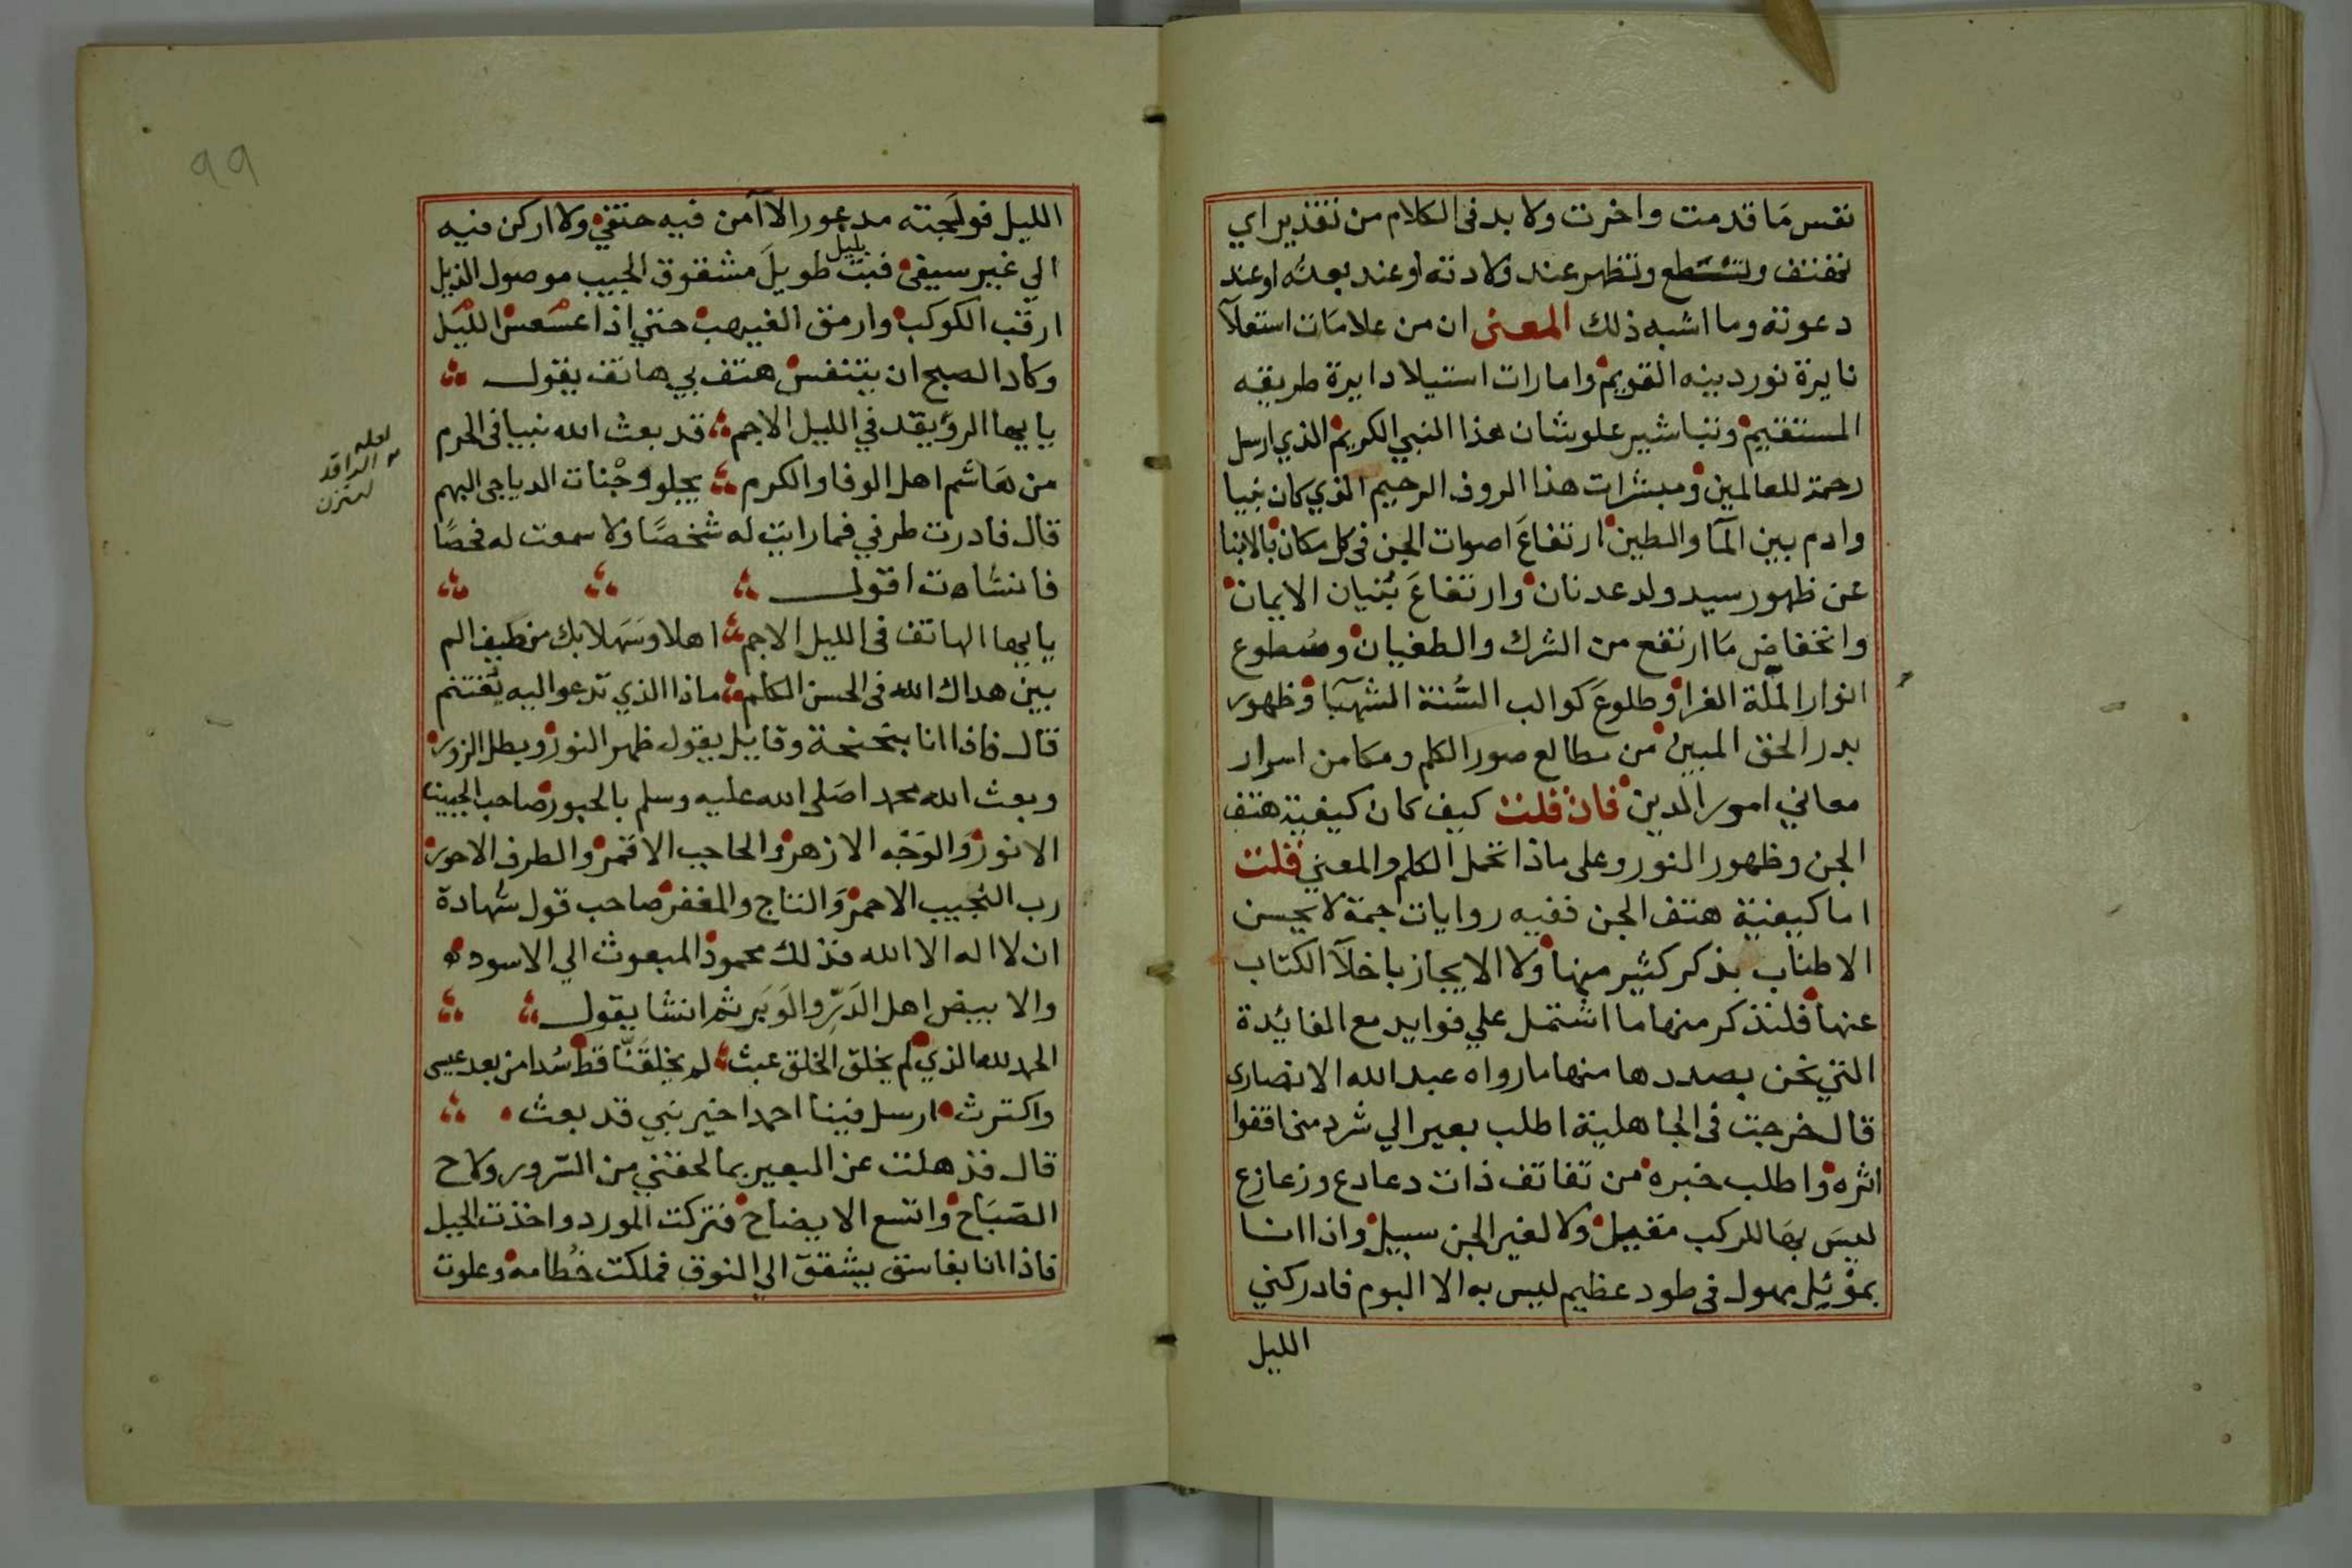 نفس مَا قدمت واخرت ولا بد فى الكلام من تقذير اي
تهتف وتسطع وتظهر عند ولادته او عند بعثه او عند
دعوته وما اشبه ذلك المعنى ان من علامَات استعلآ
نايرة نور دينه القويم وامارات استيلا دايرة طريقه
المستقيم وتباشير علو شان هذا النبي الكريم الذي ارسل
رحمة للعالمين ومبشرات هذا الروف الرحيم الذي كان نبيا
وادم بين المآ والطين ارتفاعَ اصوات الجن فى كل مكان بالانبا
عن ظهور سيد ولد عدنان وارتفاعَ بُنيان الايمان
وانخفاض مَا ارتفع من الشرك والطغيان وسُطوع
انوار الملّة الغرا وطلوعَ كوالب السُّنة الشهبَا وظهور
بدر الحق المبين من مطالع صور الكلم ومكامن اسرار
معاني امور الدين فان قلت كيف كان كيفية هتف
الجن وظهور النور وعلى ماذا تحمل الكلم والمعني قلت
اما كيفية هتف الجن ففيه روايات جمة لا يحسن
الاطناب بذكر كثير منها ولا الايجاز باخلآ الكتاب
عنها فلنذكر منها ما اشتمل علي فوايد مع الفائدة
التي نحن بصددها منها ما رواه عبد الله الانصارى
قال خرجت فى الجاهلية اطلب بعيرا لي شرد مني اقفوا
اثره واطلب خبره من تفاتف ذات دعادع وزعازع
ليسَ بهَا للركب مقيل ولا لغير الجن سبيل واذا انا
بموْئِل مهول فى طود عظيم ليس به الا البوم فادركني
الليل
99
الليل فولَجته مدعورا لا آمن فيه حتفي ولا اركن فيه
الي غير سيفى فبتّ بليل طويلَ مشقوق الجيب موصول الذيل
ارقب الكوكب وارمق الغيهب حتي اذا عسعس الليل
وكاد الصبح ان يتنفس هتف بي هاتف يقول
يا يها الرويقد في الليل الاجم قد بعث الله نبيا فى الحرم
لعله
الراقد
من هَاشم اهل الوفا والكرم يجلو وجْنات الدياجى البهم
قال فادرت طرفي فما رايت له شخصًا ولا سمعت له فحصًا
فانشات اقول
يا يها الهاتف فى الليل الاجم اهلا وسَهلا بك من طيف الم
بين هداك الله فى الحسن الكلم ماذا الذي تدعوا اليه يُغتنم
قال فاذا انا بنحنحة وقايل يقول ظهر النور وبطل الزور
وبعث الله محمدا صَلى الله عليه وسلم بالحبور صاحب الجبين
الانور وَالوَجْه الازهر والحاجب الاقمر والطرف الاحور
رب النجيب الاحمر وَالتاج والمغفر صاحب قول شهادة
ان لا اله الا الله فذلك محمود المبعوث الي الاسود
والابيض اهل المَدَرِ والوَبَر ثم انشا يقول
الحمد لله الذي لم يخلق الخلق عبث لم يخلِقَنّا قط سُدا من بعد عيسى
واكترث ارسل فينا احمدا خير نبي قد بعث
قال فذهلت عن البعير بما لحقني من السّرور ولاح
الصّبَاح واتسع الايضاح فتركت المورد واخذت الجبل
فاذا انا بفاسق يشقق الي النوق فملكت خُطامه وعلوت